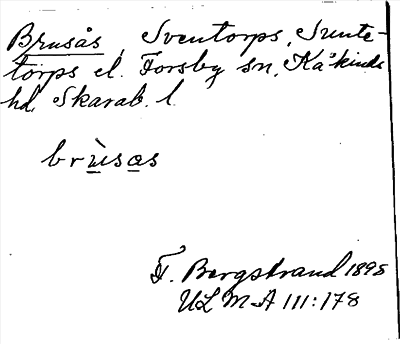 Brusås, Sventorps, Sunte-
torps el. Forsby sn, Kåkinds
hd, Skarab. l.
brùsas
F. Bergstrand 1898
ULMA 111:178